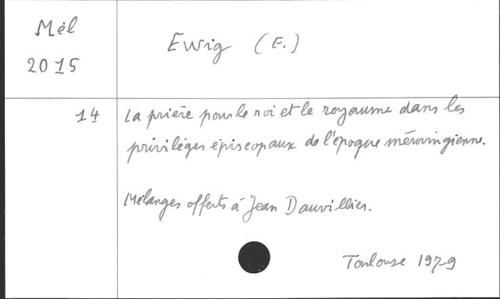 Mél
2015
Ewig (E.)
14
La prière pour le roi et le royaume dans les
privilèges épiscopaux de l'époque mérovingienne.
Mélanges offerts à Jean Dauvillier.
Toulouse 1979